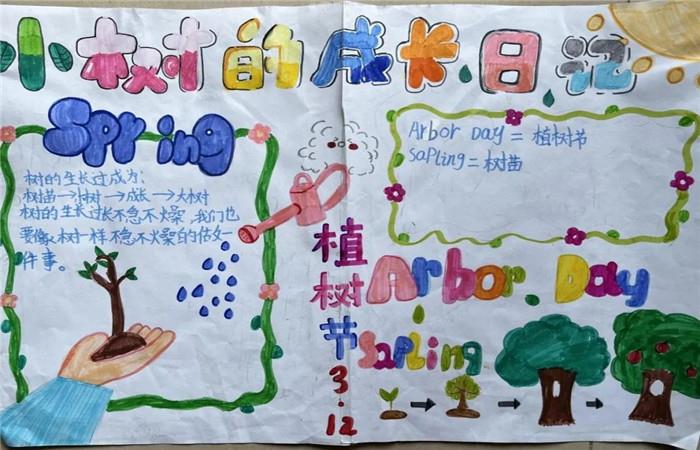 小树的成长日记
Spring
树的生长过成为:
树苗→小树→成长→大树
树的生长过长不急不燥,我们也
要像树一样不急不燥的一
件事。
Arbor Day=植树节
sapling=树苗
植树节3.12
Arbor.Day
Sapling